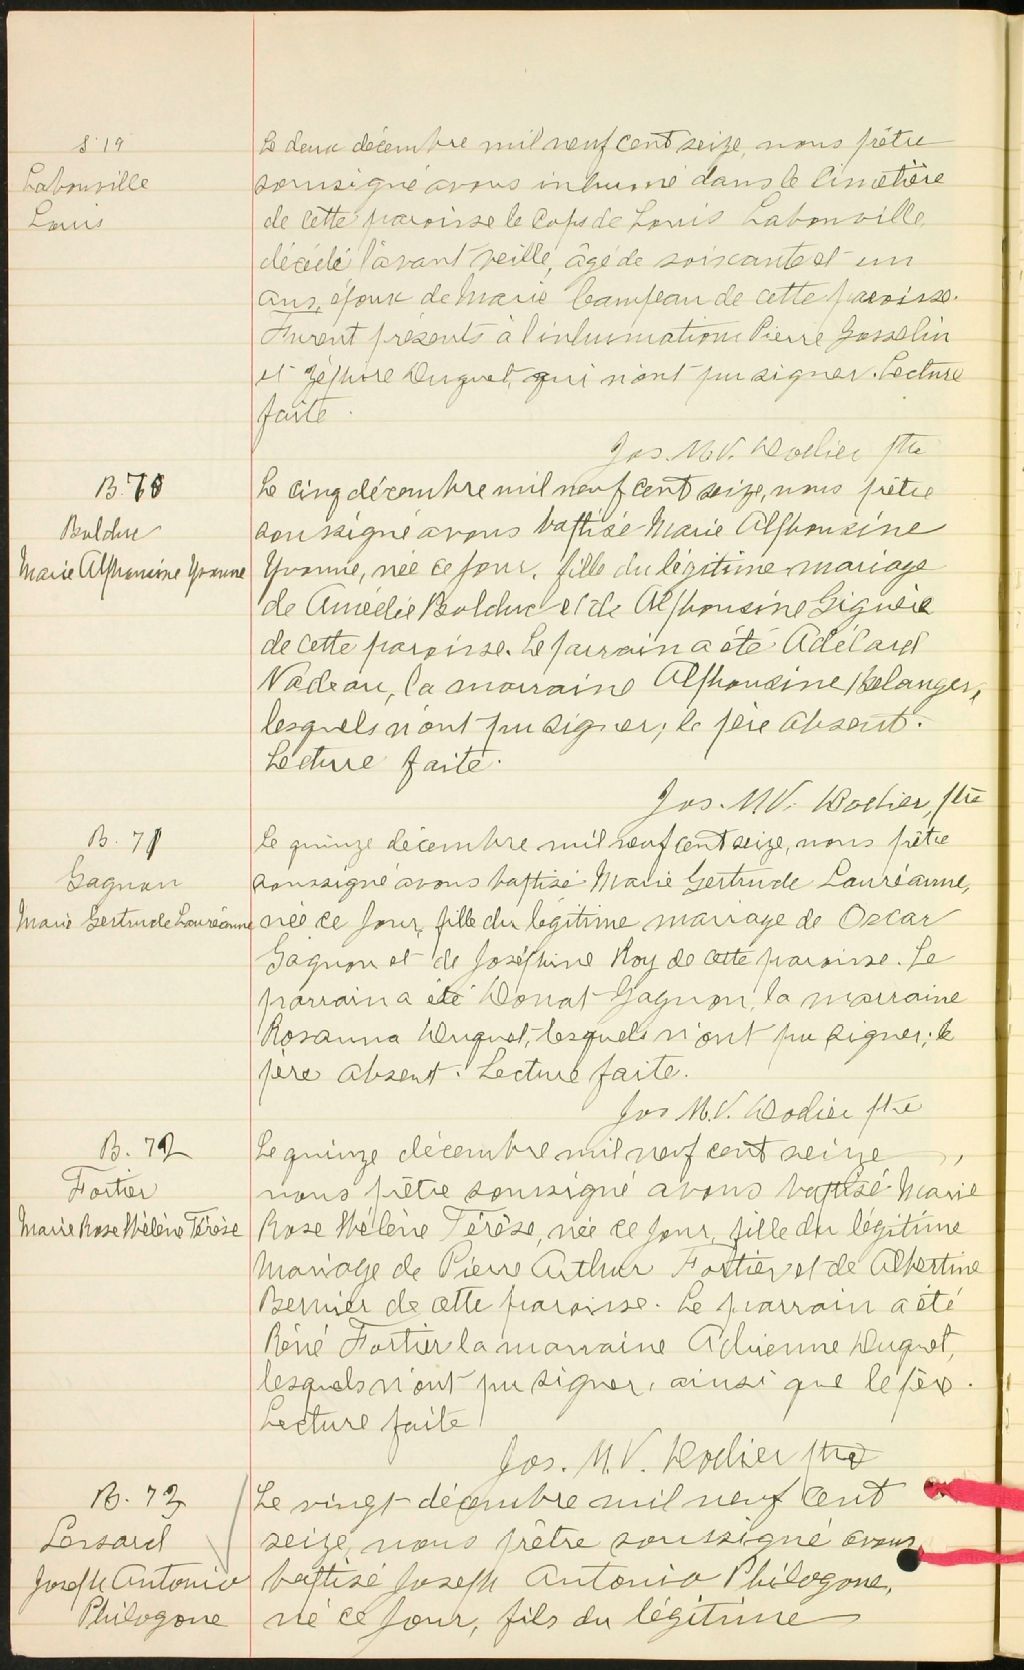 S 19
Labonville
Louis
Le deux décembre mil neuf cent seize, nous prêtre
soussigné avons inhumé dans le cimetière
de cette paroisse le cops de Louis Labonville,
décédé l'avant veille, âgé de soixante et un
ans, époux de Marie Campeau de cette paroisse.
Furent présents à l'inhumation Pierre Gosselin
et Zéphire Duquet, qui n'ont pu signer. Lecture
faite.
Jos. M.V. Dodier ptre
B. 70
Bolduc
Marie Alphonsine Yvonne
Le cinq décembre mil neuf cent seize, nous prêtre
soussigné avons baptisé Marie Alphonsine
Yvonne, née ce jour, fille du légitime mariage
de Amédée Bolduc et de Alphonsine Giguère
de cette paroisse. Le parrain a été Adélard
Nadeau, la marraine Alphonsine Belanger,
lesquels n'ont pu signer; le père absent.
Lecture faite.
Jos. M.V. Dodier, ptre
B. 71
Gagnon
Marie Gertrude Lauréanne
Le quinze décembre mil neuf cent seize, nous prêtre
soussigné avons baptisé Marie Gertrude Lauréanne,
née ce jour, fille du légitime mariage de Oscar
Gagnon et de Joséphine Roy de cette paroisse. Le
parrain a été Donat Gagnon, la marraine
Rosanna Duquet, lesquels n'ont pu signer; le
père absent. Lecture faite.
Jos M.V. Dodier ptre
B. 72
Fortier
Marie Rose Hélène Térèse
Le quinze décembre mil neuf cent seize,
nous prêtre soussigné avons baptisé Marie
Rose Hélène Térèse, née ce jour, fille du légitime
mariage de Pierre Arthur Fortier et de Albertine
Bernier de cette paroisse. Le parrain a été
Réné Fortier la marraine Adrienne Duquet,
lesquels n'ont pu signer, ainsi que le père.
Lecture faite
Jos. M.V. Dodier ptre
B. 73
Lessard
Joseph Antonio
Philogone
Le vingt décembre mil neuf cent
seize, nous prêtre soussigné avons
baptisé Joseph Antonio Philogone,
né ce jour, fils du légitime